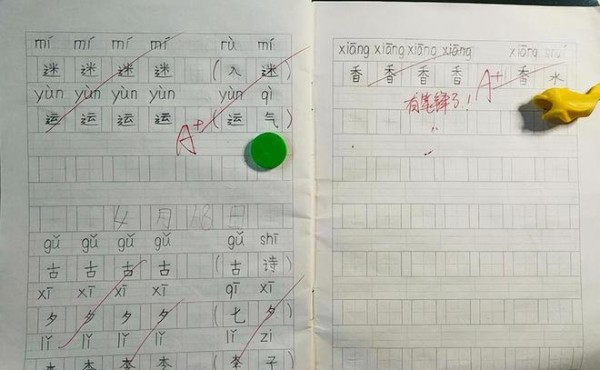 mí mí mí mí rù mí
迷 迷 迷 迷 (入 迷)
yùn yùn yùn yùn yùn qì
运 运 运 运 (运 气)
A+
4 月 18 日
gǔ gǔ gǔ gǔ gǔ shī
古 古 古 古 (古 诗)
xī xī xī xī qī xī
夕 夕 夕 夕 (七 夕)
lǐ lǐ lǐ lǐ lǐ zi
李 李 李 李 (李 子)
xiāng xiāng xiāng xiāng xiāng
香 香 香 香 香 水
A+
有笔锋了!